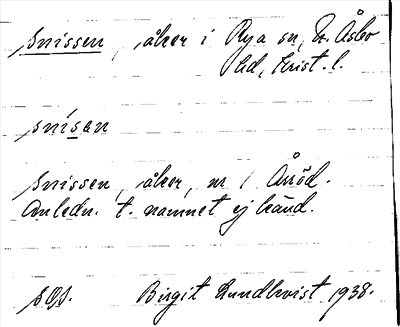 Snissen, åker i Rya sn, N. Åsbo
hd, Krist. l.
snísan
Snissen, åker, nr 1 Årröd.
Anledn. t. namnet ej känd.
SOJ. Birgit Lundkvist 1938.